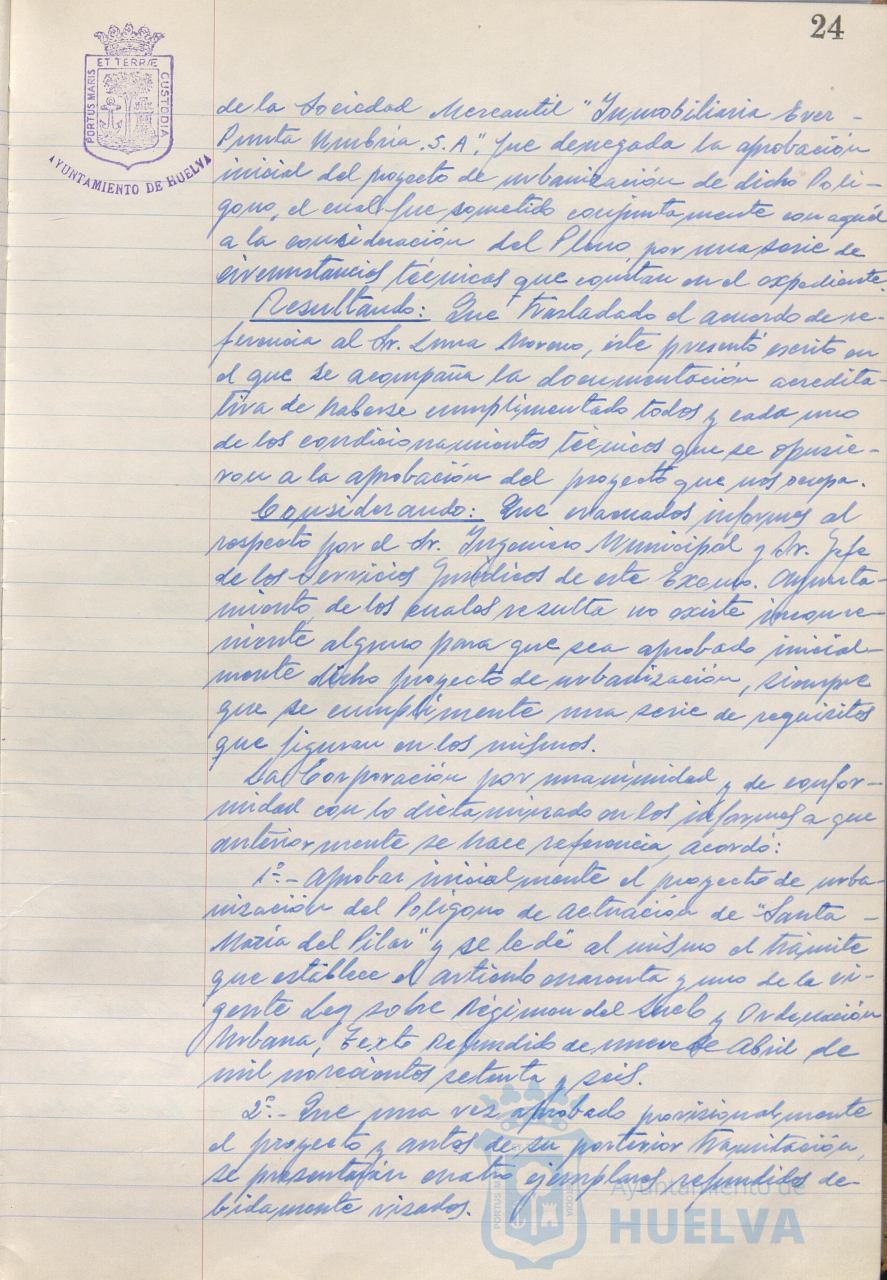 24
PORTUS MARIS ET TERRÆ CUSTODIA
AYUNTAMIENTO DE HUELVA
de la Sociedad Mercantil "Inmobiliaria Ever-
Punta Umbria. S.A". fue denegada la aprobación
inicial del proyecto de urbanización de dicho Polí-
gono, el cual fue sometido conjuntamente con aquél
a la consideración del Pleno, por una serie de
circunstancias técnicas que constan en el expediente.
Resultando: Que trasladado el acuerdo de re-
ferencia al Sr. Luna Moreno, éste presentó escrito en
el que se acompaña la documentación acredita-
tiva de haberse cumplimentado todos y cada uno
de los condicionamientos técnicos que se opusie-
ron a la aprobación del proyecto que nos ocupa.
Considerando: Que evacuados informes al
respecto por el Sr. Ingeniero Municipal y Sr. Jefe
de los Servicios Jurídicos de este Excmo. Ayunta-
miento, de los cuales resulta no existe inconve-
niente alguno para que sea aprobado inicial-
mente dicho proyecto de urbanización, siempre
que se cumplimente una serie de requisitos
que figuran en los mismos.
La Corporación por unanimidad y de confor-
midad con lo dictaminado en los informes a que
anteriormente se hace referencia, acordó:
1º.- Aprobar inicialmente el proyecto de urba-
nización del Polígono de actuación de "Santa-
María del Pilar" y se le dé al mismo el trámite
que establece el artículo cuarenta y uno de la vi-
gente Ley sobre Régimen del Suelo y Ordenación
Urbana, Texto Refundido de nueve de Abril de
mil novecientos setenta y seis.
2º.- Que una vez aprobado provisionalmente
el proyecto y antes de su posterior tramitación,
se presentarán cuatro ejemplares refundidos de-
bidamente visados.
Ayuntamiento de
HUELVA